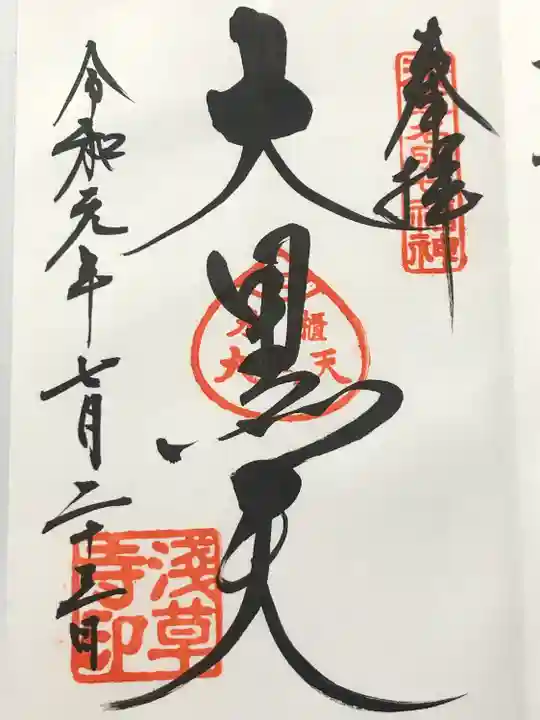 奉拝
大黒天
令和元年七月二十三日
浅草寺印